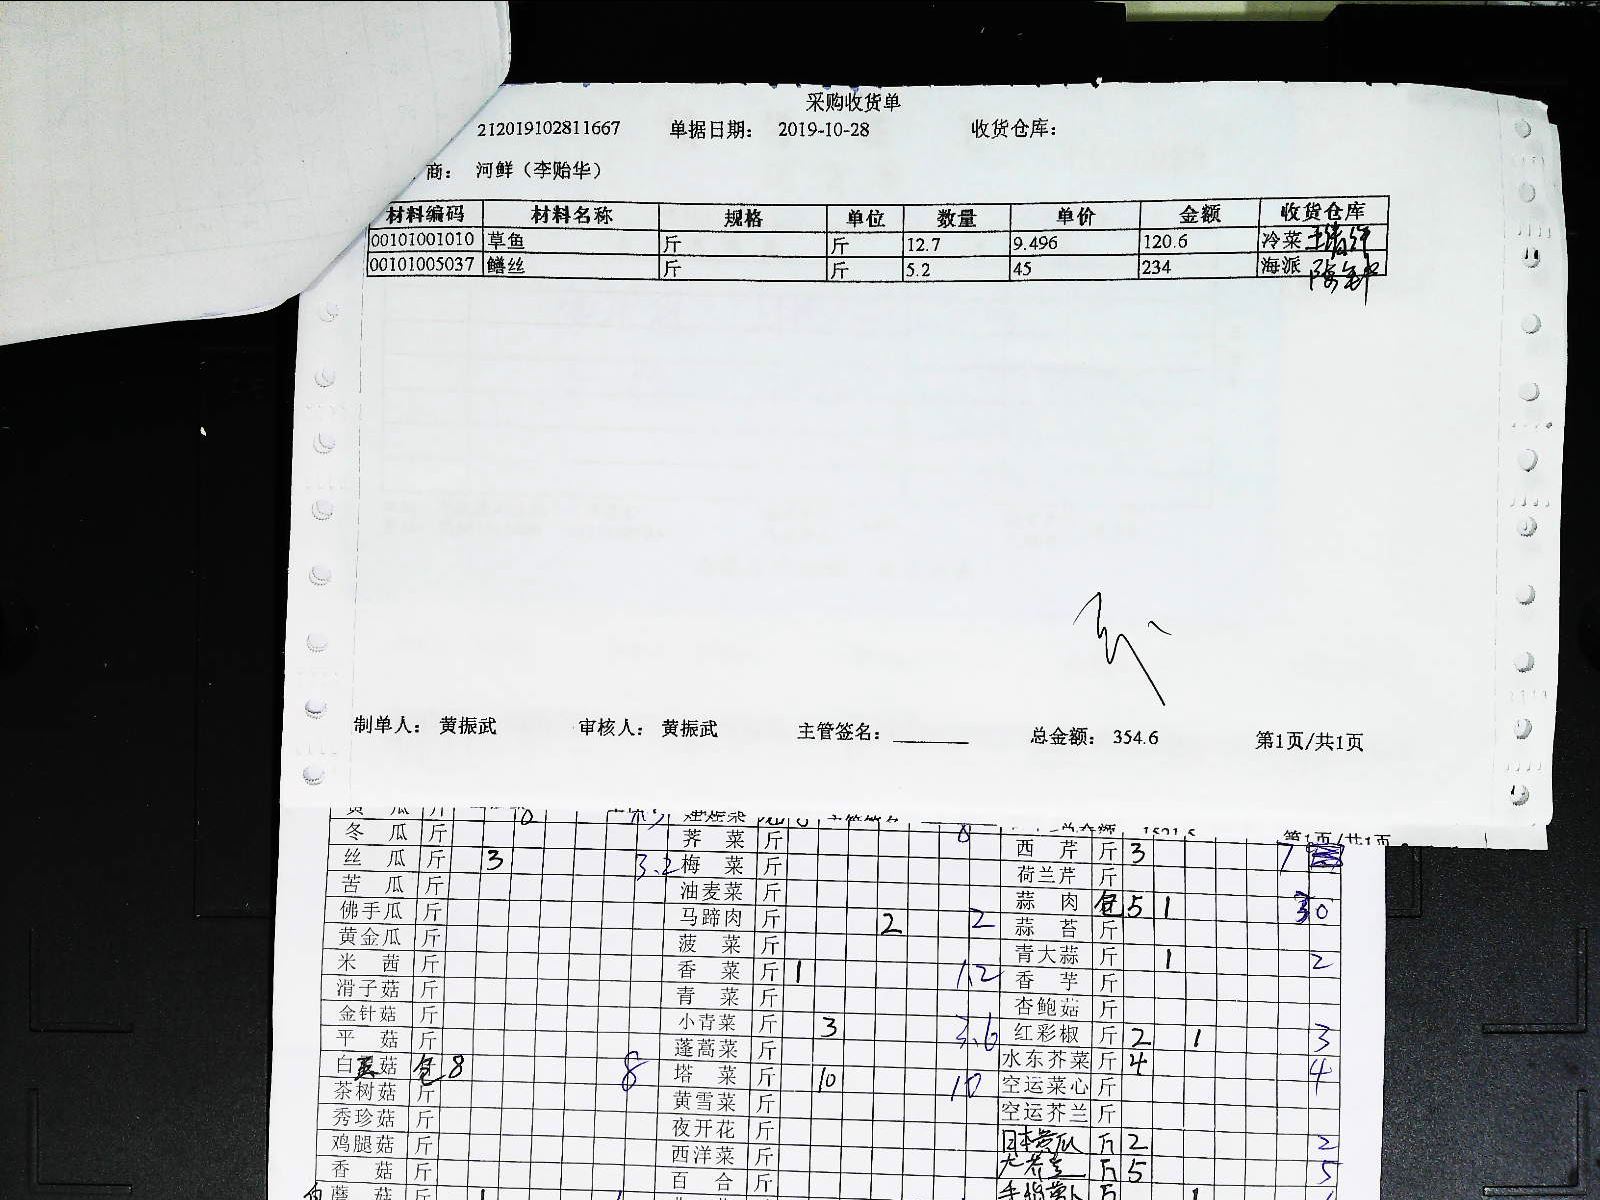 采购收货单
212019102811667 单据日期： 2019-10-28 收货仓库：
商： 河鲜（李贻华）
材料编码 材料名称 规格 单位 数量 单价 金额 收货仓库
00101001010 草鱼 斤 斤 12.7 9.496 120.6 冷菜
00101005037 鳝丝 斤 斤 5.2 45 234 海派
制单人： 黄振武 审核人： 黄振武 主管签名： 总金额： 354.6 第1页/共1页
第1页/共1页
冬瓜 斤 荠菜 斤 西芹 斤 3 7
丝瓜 斤 3 3.2 梅菜 斤 荷兰芹 斤
苦瓜 斤 油麦菜 斤 蒜肉 包 5 1 30
佛手瓜 斤 马蹄肉 斤 2 2 蒜苔 斤
黄金瓜 斤 菠菜 斤 青大蒜 斤 1 2
米茜 斤 香菜 斤 1 1.2 香芋 斤
滑子菇 斤 青菜 斤 杏鲍菇 斤
金针菇 斤 小青菜 斤 3 3.6 红彩椒 斤 2 1 3
平菇 斤 蓬蒿菜 斤 水东芥菜 斤 4 4
白 菇 包 8 8 塔菜 斤 10 10 空运菜心 斤
茶树菇 斤 黄雪菜 斤 空运芥兰 斤
秀珍菇 斤 夜开花 斤 日本黄瓜 斤 2 2
鸡腿菇 斤 西洋菜 斤 斤 5 5
香菇 斤 百合 斤
蘑菇 斤